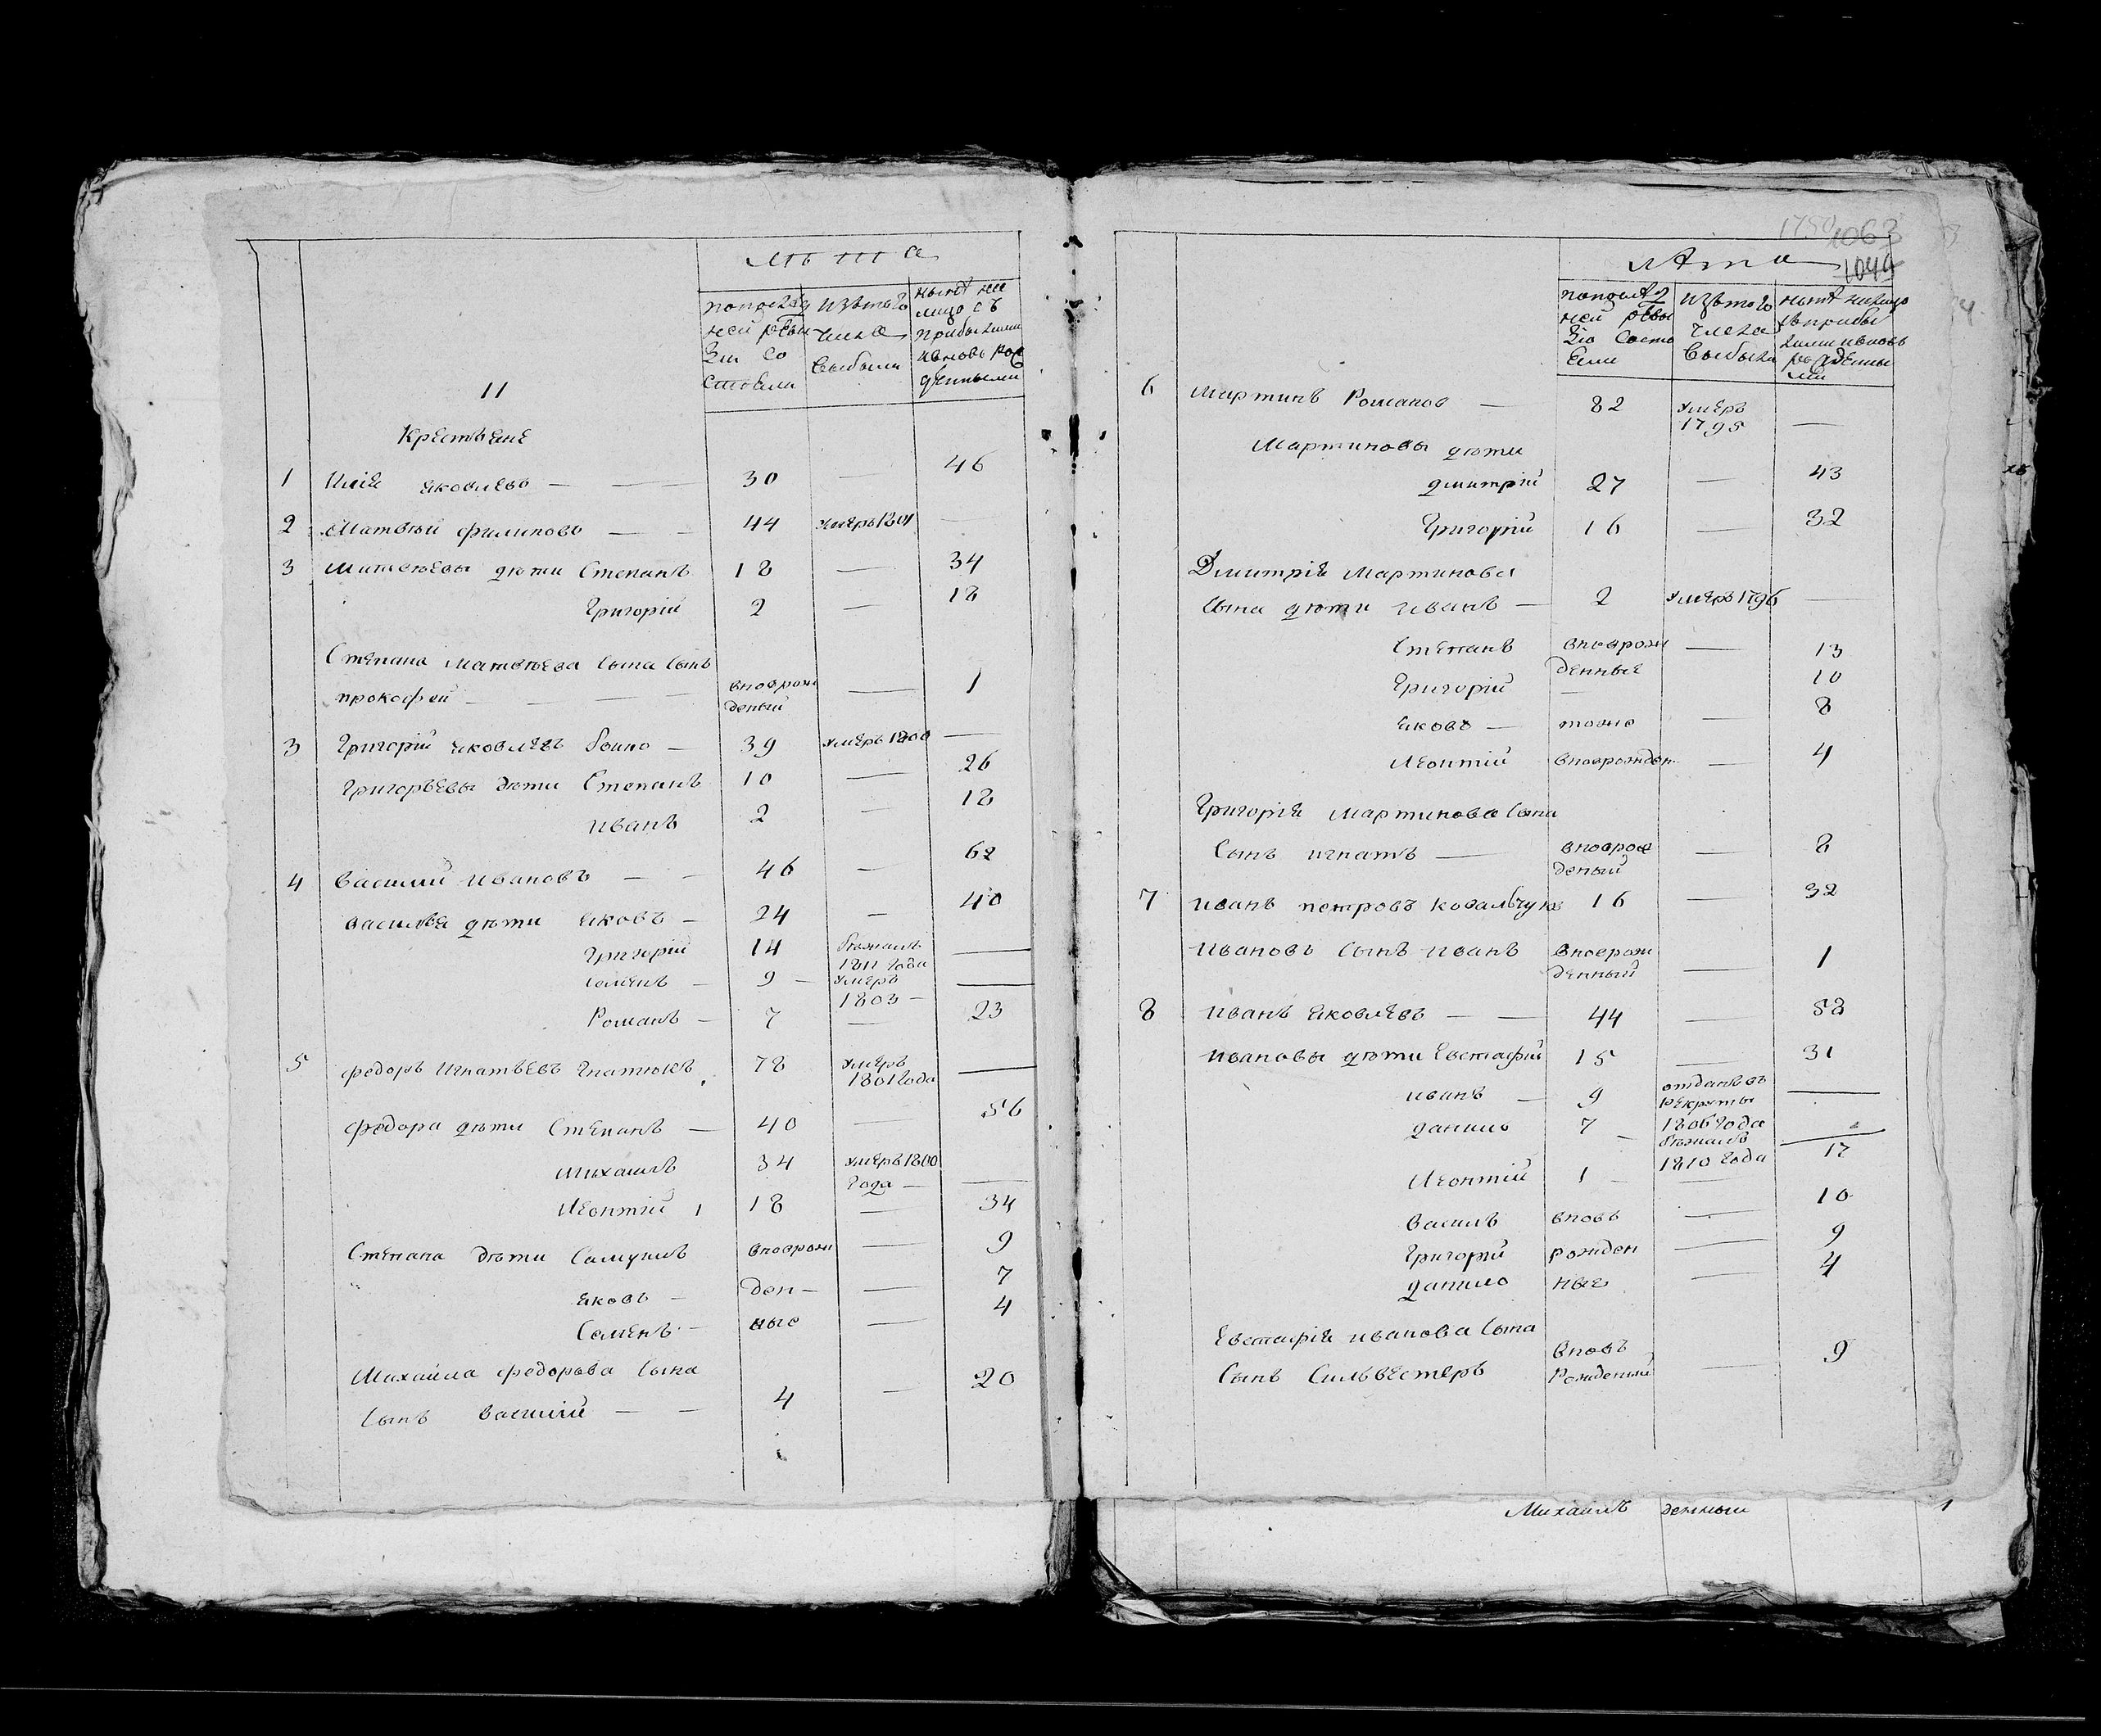 лѣта
попослѣд
ней реви
зіи со
стояли
изѣтого
числа
выбыли
нынѣ на
лицо съ
прибылыми
ивновь рож
денными
11
Крестьяне
1 Илія яковлевъ — — 30 — 46
2 Матвѣй филиповъ — — 44 умеръ 1801 —
3 Матвѣевы дѣти Степанъ 18 — 34
Григорій 2 — 18
Степана матвѣева сына сынъ
прокофей — — — вноврож
деный — 1
3 Григорій яковлевъ — 39 умеръ 1800 —
Григорьевы дѣти Степанъ 10 — 26
иванъ 2 — 18
4 василий ивановъ — — 46 — 62
василья дѣти яковъ — 24 — 40
Григорій 14 бѣжалъ
1811 года —
семенъ — 9 — умеръ
1803 — —
Романъ — 7 — 23
5 федоръ игнатьевъ гнатюкъ 78 умеръ
1801 года —
федора дѣти Степанъ — 40 — 56
михаилъ 34 умеръ 1800
года — —
леонтій 18 — 34
Степана дѣти Самуилъ вноврож — 9
яковъ — ден — — 7
Семенъ — ные — 4
Михайла федорова сына
сынъ василій — — 4 — 20
1063
1049
лѣта
попослѣд
ней реви
зіи состо
яли
изѣтого
числа
выбыли
нынѣ налицо
съприбы
лыми ивновь
рожденны
ми
6 мартинъ Романов — 82 умеръ
1795 —
Мартиновы дѣти
дмитрій 27 — 43
Григорій 16 — 32
Дмитрія мартинова
сына дѣти иванъ — 2 умеръ 1796 —
Степанъ вноврож — 13
денные
Григорій — 10
яковъ — тожъ — 8
леонтій вноврожден — 4
Григорія мартинова сына
сынъ игнатъ — вноврож
деный — 8
7 иванъ петровъ ковальчукъ 16 — 32
ивановъ сынъ иванъ вноврож
денный — 1
8 иванъ яковлевъ — — 44 — 58
ивановы дѣти Евстафий 15 — 31
иванъ — 9 отданъ въ
рекруты —
1806 года
данило 7 — бѣжалъ
1810 года —
леонтій 1 — — 17
василь вновь — 10
Григорій рожден — 9
данило ные — 4
Евстафія иванова сына
сынъ Сильвестеръ вновь
Рожденый — 9
Михаилъ денный 1